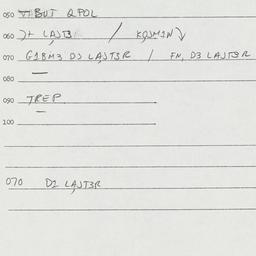 050 VIBUT QPOL
060 )+ LAJT3R / KOSMIN
070 G1BM3 DJ LAJT3R / FN, D3 LAJT3R
080
090 TREP
100
070 D1 LAJT3R